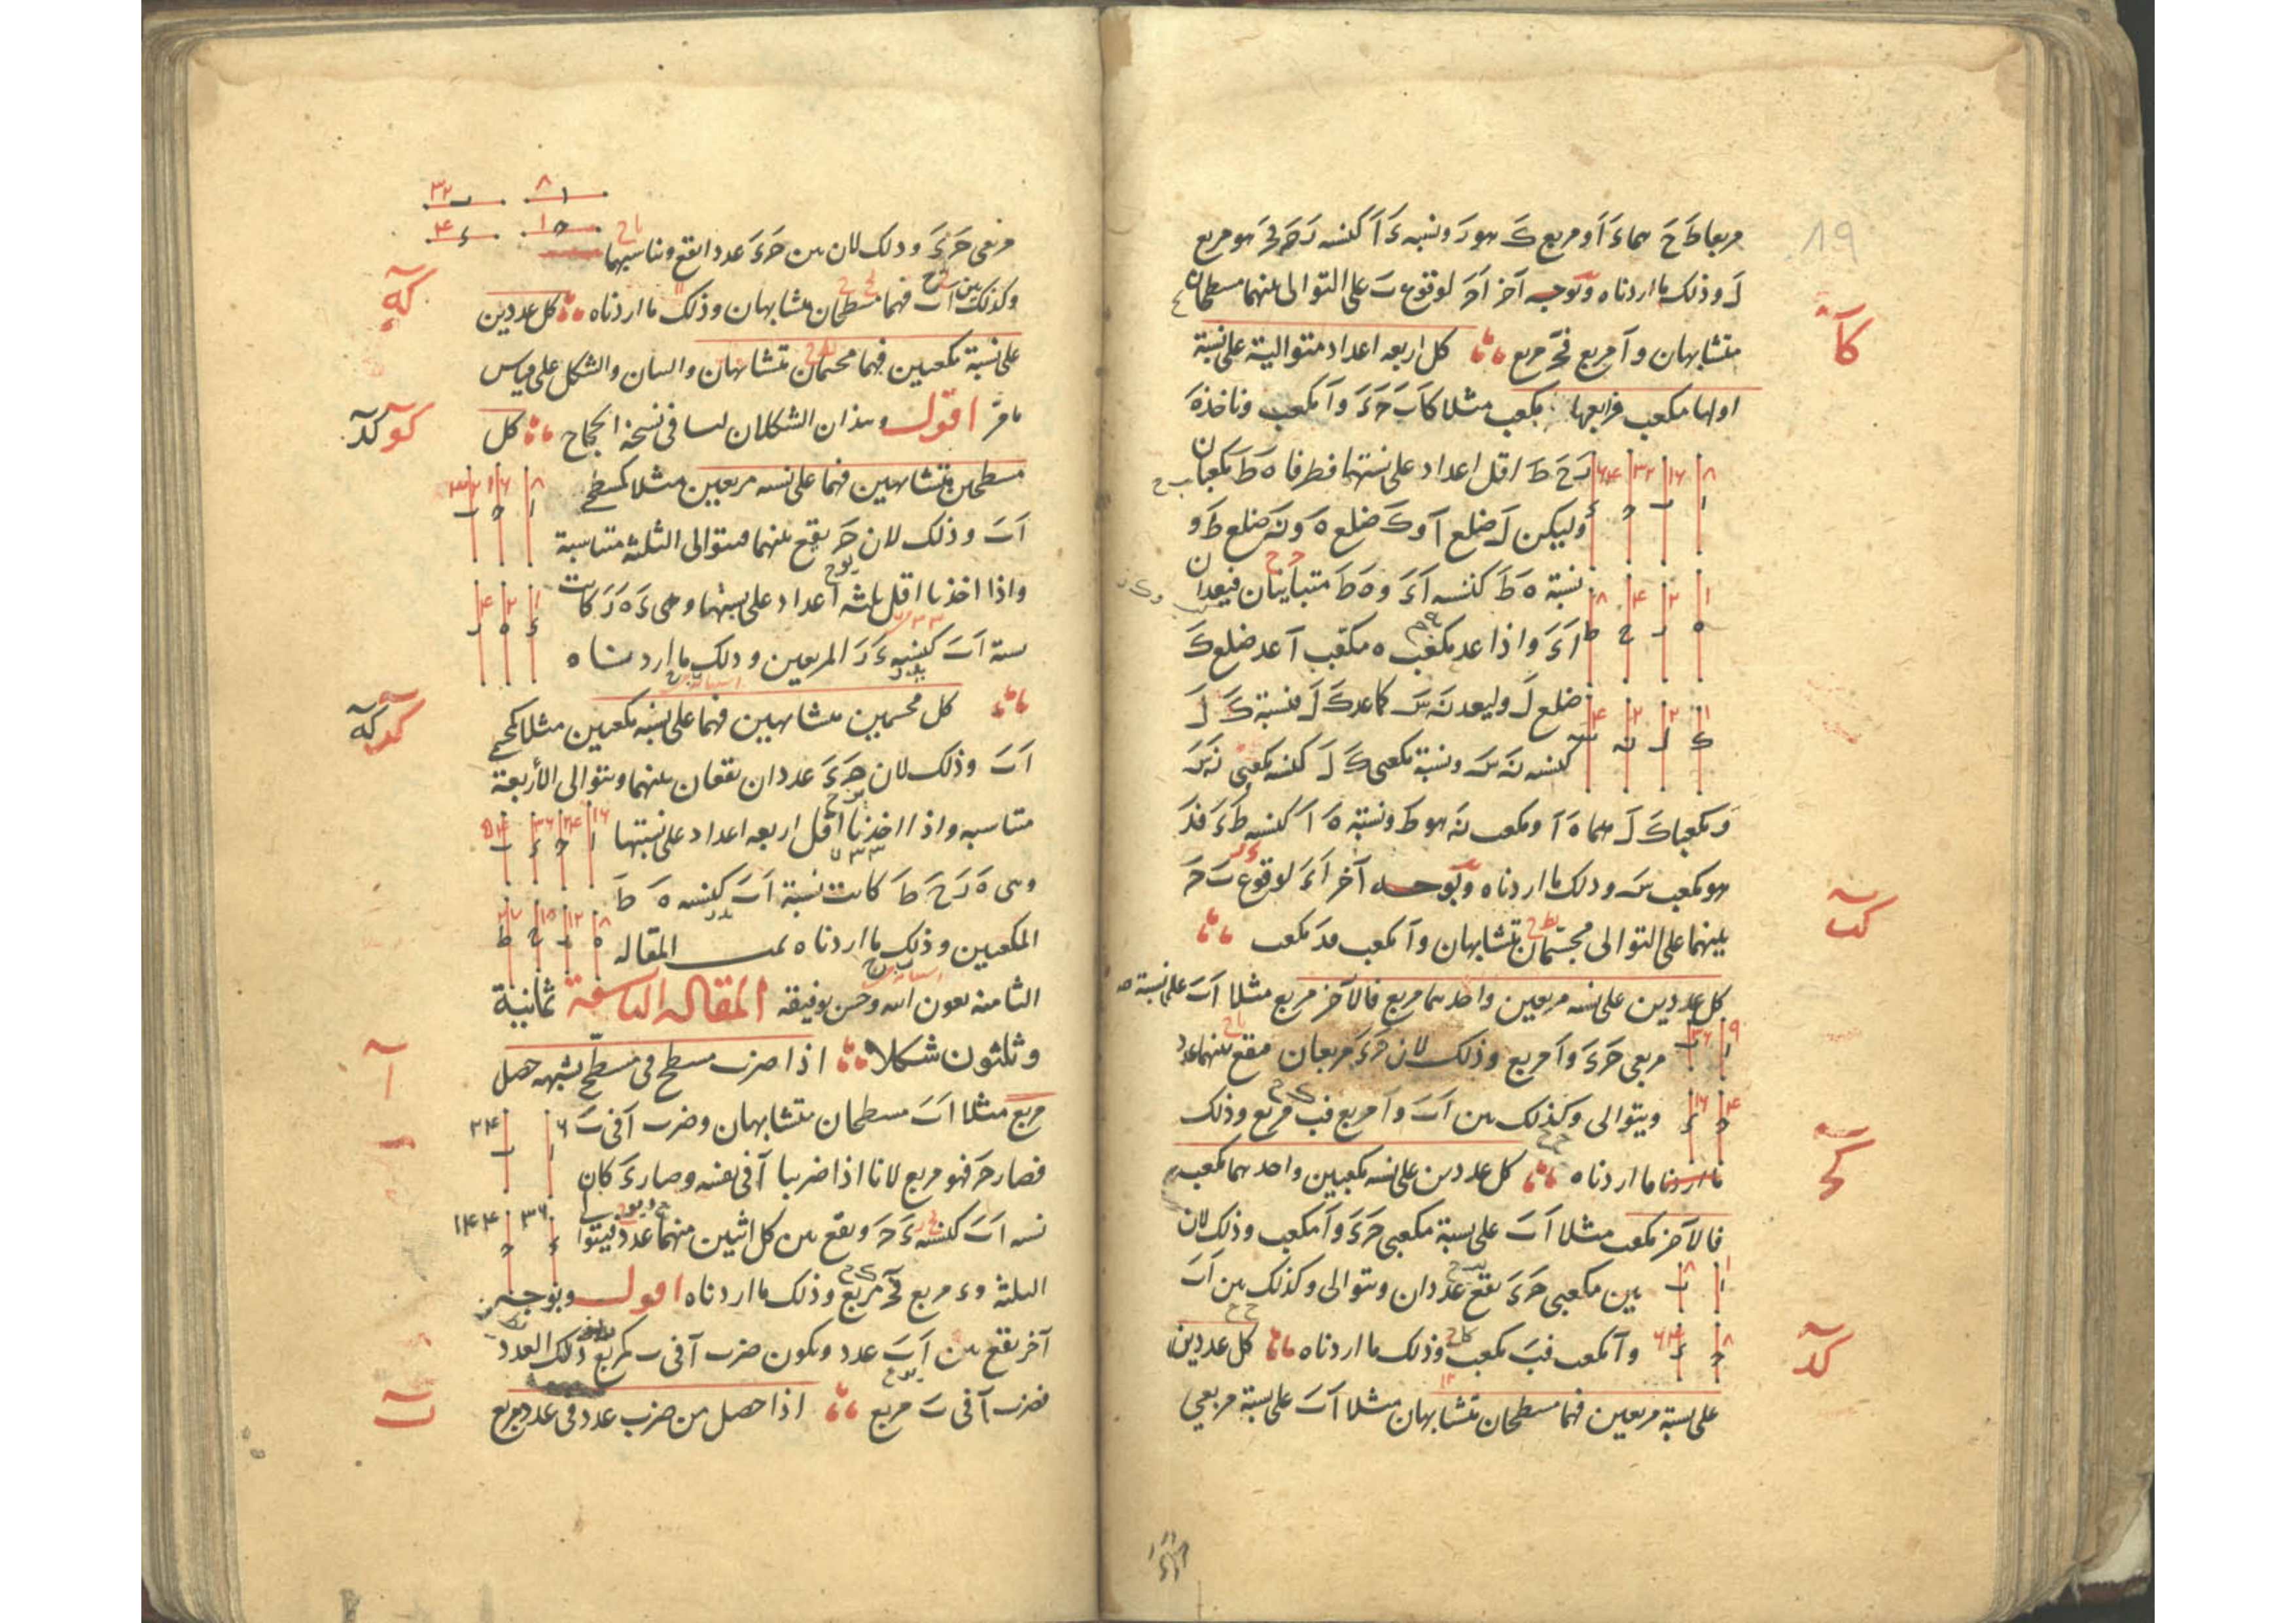 مربعا ط ح هما ء ا و مربع ك هو ر ونسبة ء ا كنسبة ر ح فح هو مربع
ل وذلك ما اردناه وبوجه آخر ا ح لوقوع ب على التوالى بينهما مسطحان
متشابهان و ا مربع فح مربع كل اربعة اعداد متوالية على نسبة
اولها مكعب فرابعها مكعب مثلا كا ب ح ء و ا مكعب وناخذ ه
ر ح ط اقل اعداد على نسبتها فطرفا ه ط مكعبان
وليكن ل ضلع ا و ك ضلع ه و ن ضلع ط و
نسبة ه ط كنسبة ا ء و ه ط متباينان فيعدان
ا ء واذا عد مكعب ه مكعب ا عد ضلع ك
ضلع ل وليعد ن س كما عد ك ل فنسبة ك ل
كنسبة ن س ونسبة مكعبى ك ل كنسبة مكعبى ن س
ومكعبا ك ل هما ه ا ومكعب ن هو ط ونسبة ه ا كنسبة ط ء فء
هو مكعب س وذلك ما اردناه وبوجه آخر ا ء لوقوع ب ح
بينهما على التوالى مجسمان متشابهان و ا مكعب فء مكعب
كل عددين على نسبة مربعين واحدهما مربع فالآخر مربع مثلا ا ب على نسبة
مربعى ح ء و ا مربع وذلك لان ح ء مربعان فيقع بينهما عدد
ويتوالى وكذلك بين ا ب و ا مربع فب مربع وذلك
ما اردناه كل عددين على نسبة مكعبين واحدهما مكعب
فالآخر مكعب مثلا ا ب على نسبة مكعبى ح ء و ا مكعب وذلك لان
بين مكعبى ح ء يقع عددان ويتوالى وكذلك بين ا ب
و ا مكعب فب مكعب وذلك ما اردناه كل عددين
على نسبة مربعين فهما مسطحان متشابهان مثلا ا ب على نسبة مربعى
19
كا
كب
كح
كد
مربعى ح ء وذلك لان بين ح ء عددا يقع ويناسبهما
وكذلك بين ا ب فهما مسطحان متشابهان وذلك ما اردناه كل عددين
على نسبة مكعبين فهما مجسمان متشابهان والبيان والشكل على قياس
ما مر اقول وهذان الشكلان ليسا فى نسخة الحجاج كل
مسطحين متشابهين فهما على نسبة مربعين مثلا كمسطحى
ا ب وذلك لان ح يقع بينهما ويتوالى الثلثة متناسبة
واذا اخذنا اقل ثلثة اعداد على نسبتها وهى ء ه ر كانت
نسبة ا ب كنسبة ء ر المربعين وذلك ما اردناه
كل مجسمين متشابهين فهما على نسبة مكعبين مثلا كمجسمى
ا ب وذلك لان ح ء عددان يقعان بينهما ويتوالى الأربعة
متناسبة واذا اخذنا اقل اربعة اعداد على نسبتها
وهى ه ر ح ط كانت نسبة ا ب كنسبة ه ط
المكعبين وذلك ما اردناه تمت المقالة
الثامنة بعون الله وحسن توفيقه المقالة التاسعة ثمانية
وثلثون شكلا اذا ضرب مسطح فى مسطح يشبهه حصل
مربع مثلا ا ب مسطحان متشابهان وضرب ا فى ب
فصار ح فهو مربع لانا اذا ضربنا ا فى نفسه وصار ء كان
نسبة ا ب كنسبة ء ح ويقع بين كل اثنين منهما عدد فيتوالى
الثلثة و ء مربع فح مربع وذلك ما اردناه اقول وبوجه
آخر يقع بين ا ب عدد ويكون ضرب ا فى ب كمربع ذلك العدد
فضرب ا فى ب مربع اذا حصل من ضرب عدد فى عدد مربع
كه
كو كد
كد كه
ا
ب